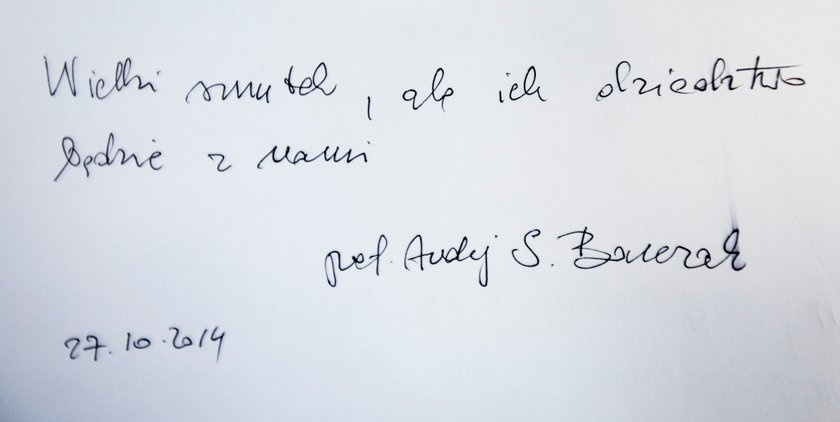 Wielki smutek, ale ich dziedzictwo
będzie z nami
prof. Andrzej S. Barczak
27.10.2014